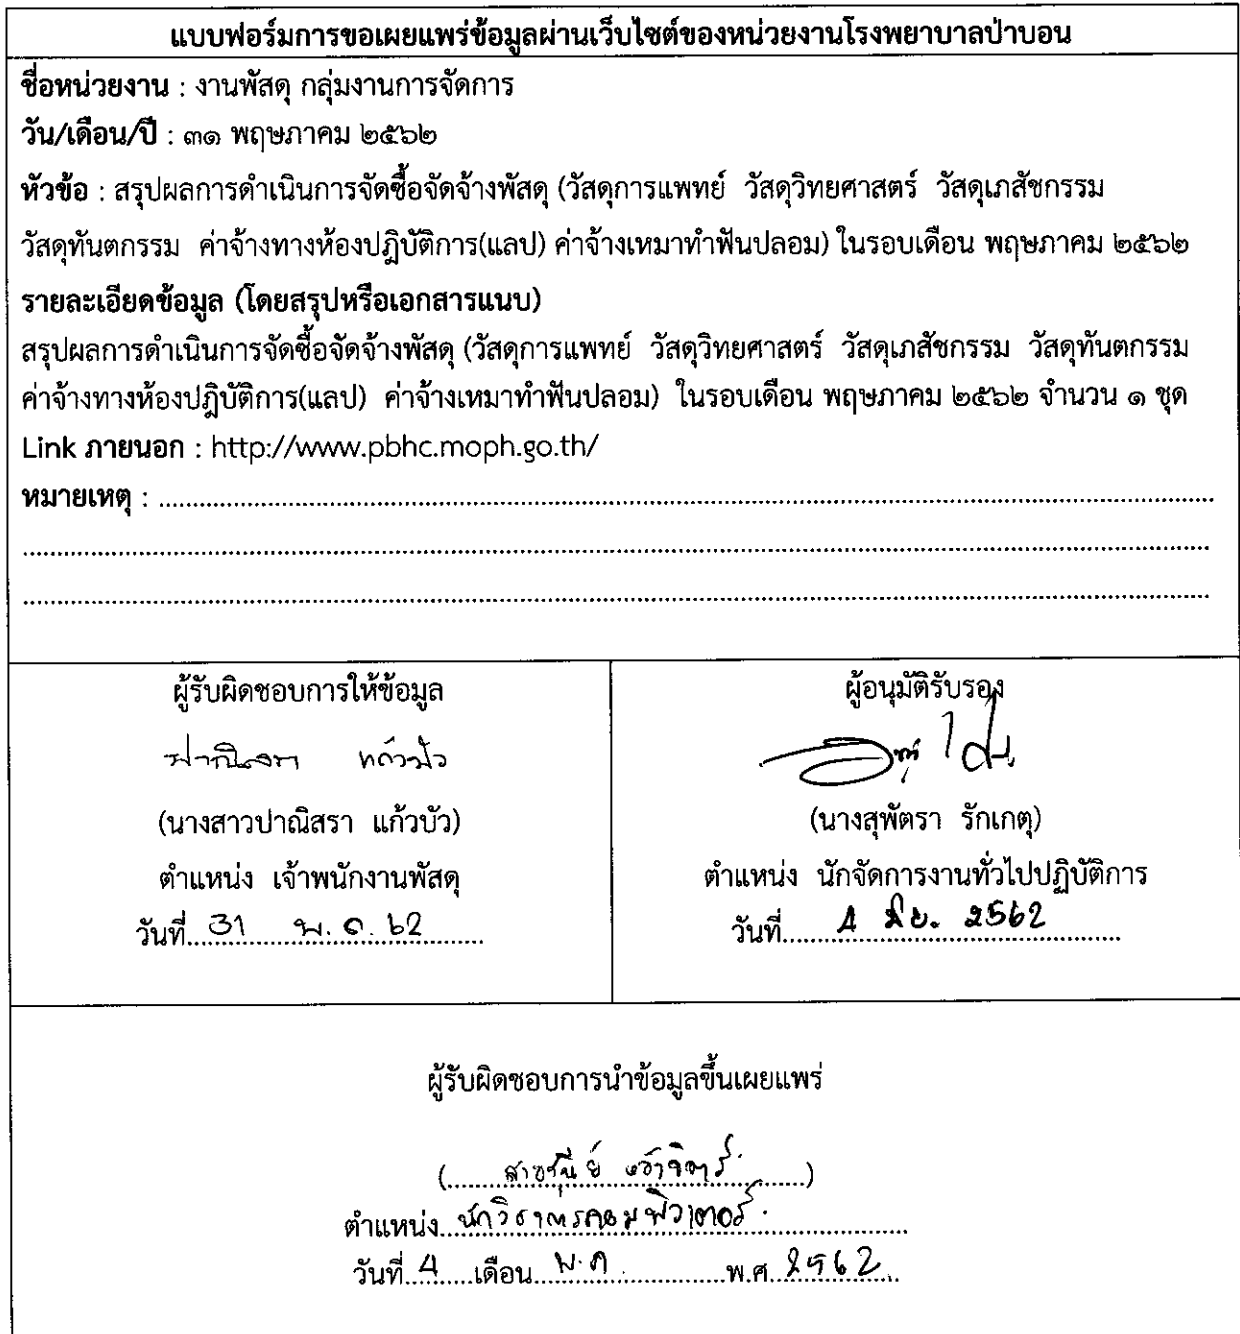 แบบฟอร์มการขอเผยแพร่ข้อมูลผ่านเว็บไซต์ของหน่วยงานโรงพยาบาลป่าบอน
ชื่อหน่วยงาน : งานพัสดุ กลุ่มงานการจัดการ
วัน/เดือน/ปี : ๓๑ พฤษภาคม ๒๕๖๒
หัวข้อ : สรุปผลการดำเนินการจัดซื้อจัดจ้างพัสดุ (วัสดุการแพทย์ วัสดุวิทยศาสตร์ วัสดุเภสัชกรรม
วัสดุทันตกรรม ค่าจ้างทางห้องปฎิบัติการ(แลป) ค่าจ้างเหมาทำฟันปลอม) ในรอบเดือน พฤษภาคม ๒๕๖๒
รายละเอียดข้อมูล (โดยสรุปหรือเอกสารแนบ)
สรุปผลการดำเนินการจัดซื้อจัดจ้างพัสดุ (วัสดุการแพทย์ วัสดุวิทยศาสตร์ วัสดุเภสัชกรรม วัสดุทันตกรรม
ค่าจ้างทางห้องปฎิบัติการ(แลป) ค่าจ้างเหมาทำฟันปลอม) ในรอบเดือน พฤษภาคม ๒๕๖๒ จำนวน ๑ ชุด
Link ภายนอก : http://www.pbhc.moph.go.th/
หมายเหตุ :
ผู้รับผิดชอบการให้ข้อมูล
ปาณิสรา แก้วบัว
(นางสาวปาณิสรา แก้วบัว)
ตำแหน่ง เจ้าพนักงานพัสดุ
วันที่ 31 พ.ค. 62
ผู้อนุมัติรับรอง
(นางสุพัตรา รักเกตุ)
ตำแหน่ง นักจัดการงานทั่วไปปฏิบัติการ
วันที่ 4 มิย. 2562
ผู้รับผิดชอบการนำข้อมูลขึ้นเผยแพร่
ตำแหน่ง นักวิชาการคอมพิวเตอร์
วันที่ 4 เดือน พ.ค. พ.ศ. 2562